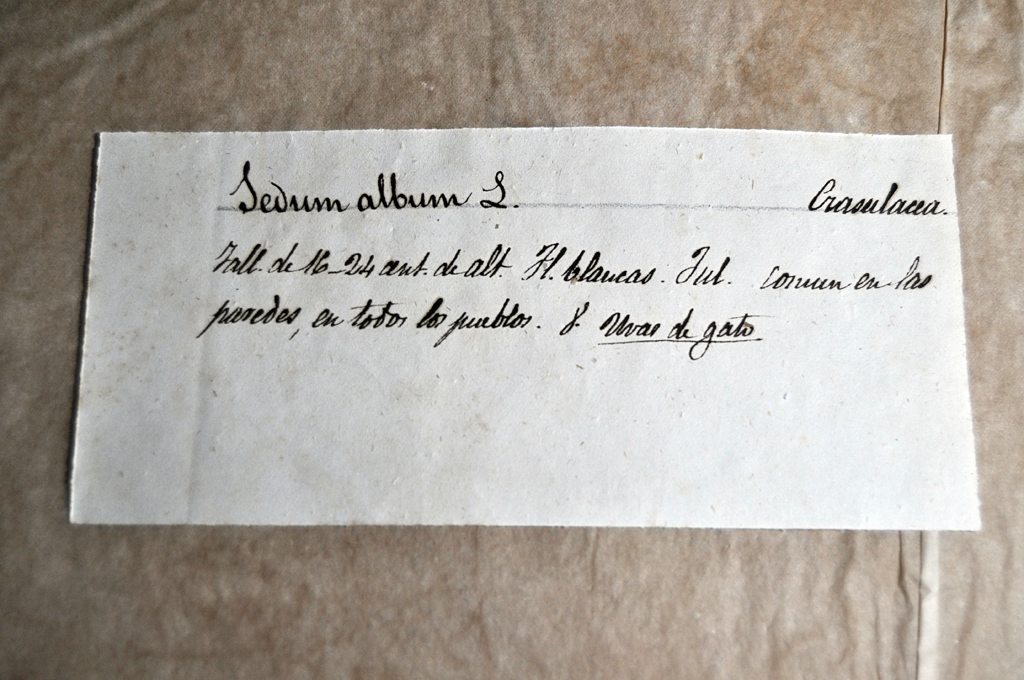 Sedum album L. Crasulacea.
Tall. de 16-24 cent. de alt. Fl. blancas. Jul. comun en las
paredes, en todos los pueblos. Uvas de gato.